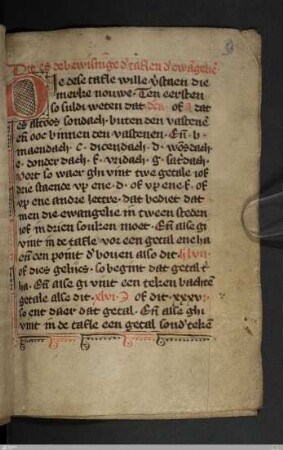 Dit es de bewisinge d' taflen d' ewāgeliē
Die dese tafle wille v'staen die
merke nouwe. Ten eersten
so suldi weten dat den of A dat
es altoos sondach buten den vastenē
eñ ooc binnen den vastenen. Eñ b.
maendach. c. dicendach. d. wōsdach
e. donder dach. f. vridach. g. sat'dach
voort so waer ghi vint twe getale iof
drie staende vp ene. d. of vp ene. f. of
vp ene andre lettre. dat bediet dat
men die ewangelie in tween steden
iof in drien souken moet. Eñ alse gi
vint in de tafle vor een getal ene ha
eñ een point d' bouen also dit
of dies gelics. so begint dat getal t'
ha. Eñ alse gi vint een teken bachtē
getale alse dit. xlvi. of dit. xxxv.
so ent daer dat getal. Eñ alse ghi
vint in de tafle een getal sond' tekē